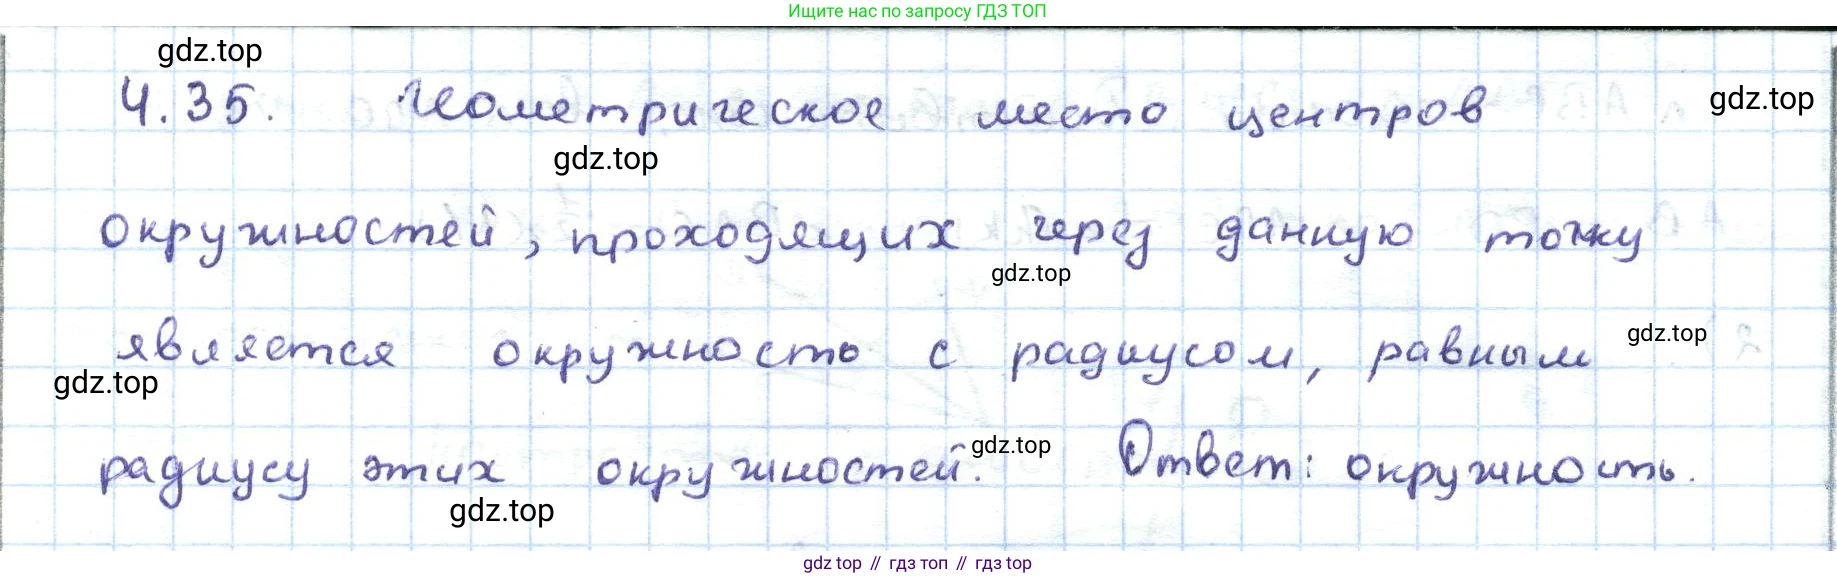 Ищите нас по запросу ГДЗ ТОП
gdz.top
4.35. Геометрическое место центров
gdz.top
gdz.top
окружностей, проходящих через данную точку
gdz.top
является окружность с радиусом, равным
gdz.top
gdz.top
радиусу этих окружностей. Ответ: окружность.
gdz.top
gdz.top
gdz top // гдз топ // гдз top